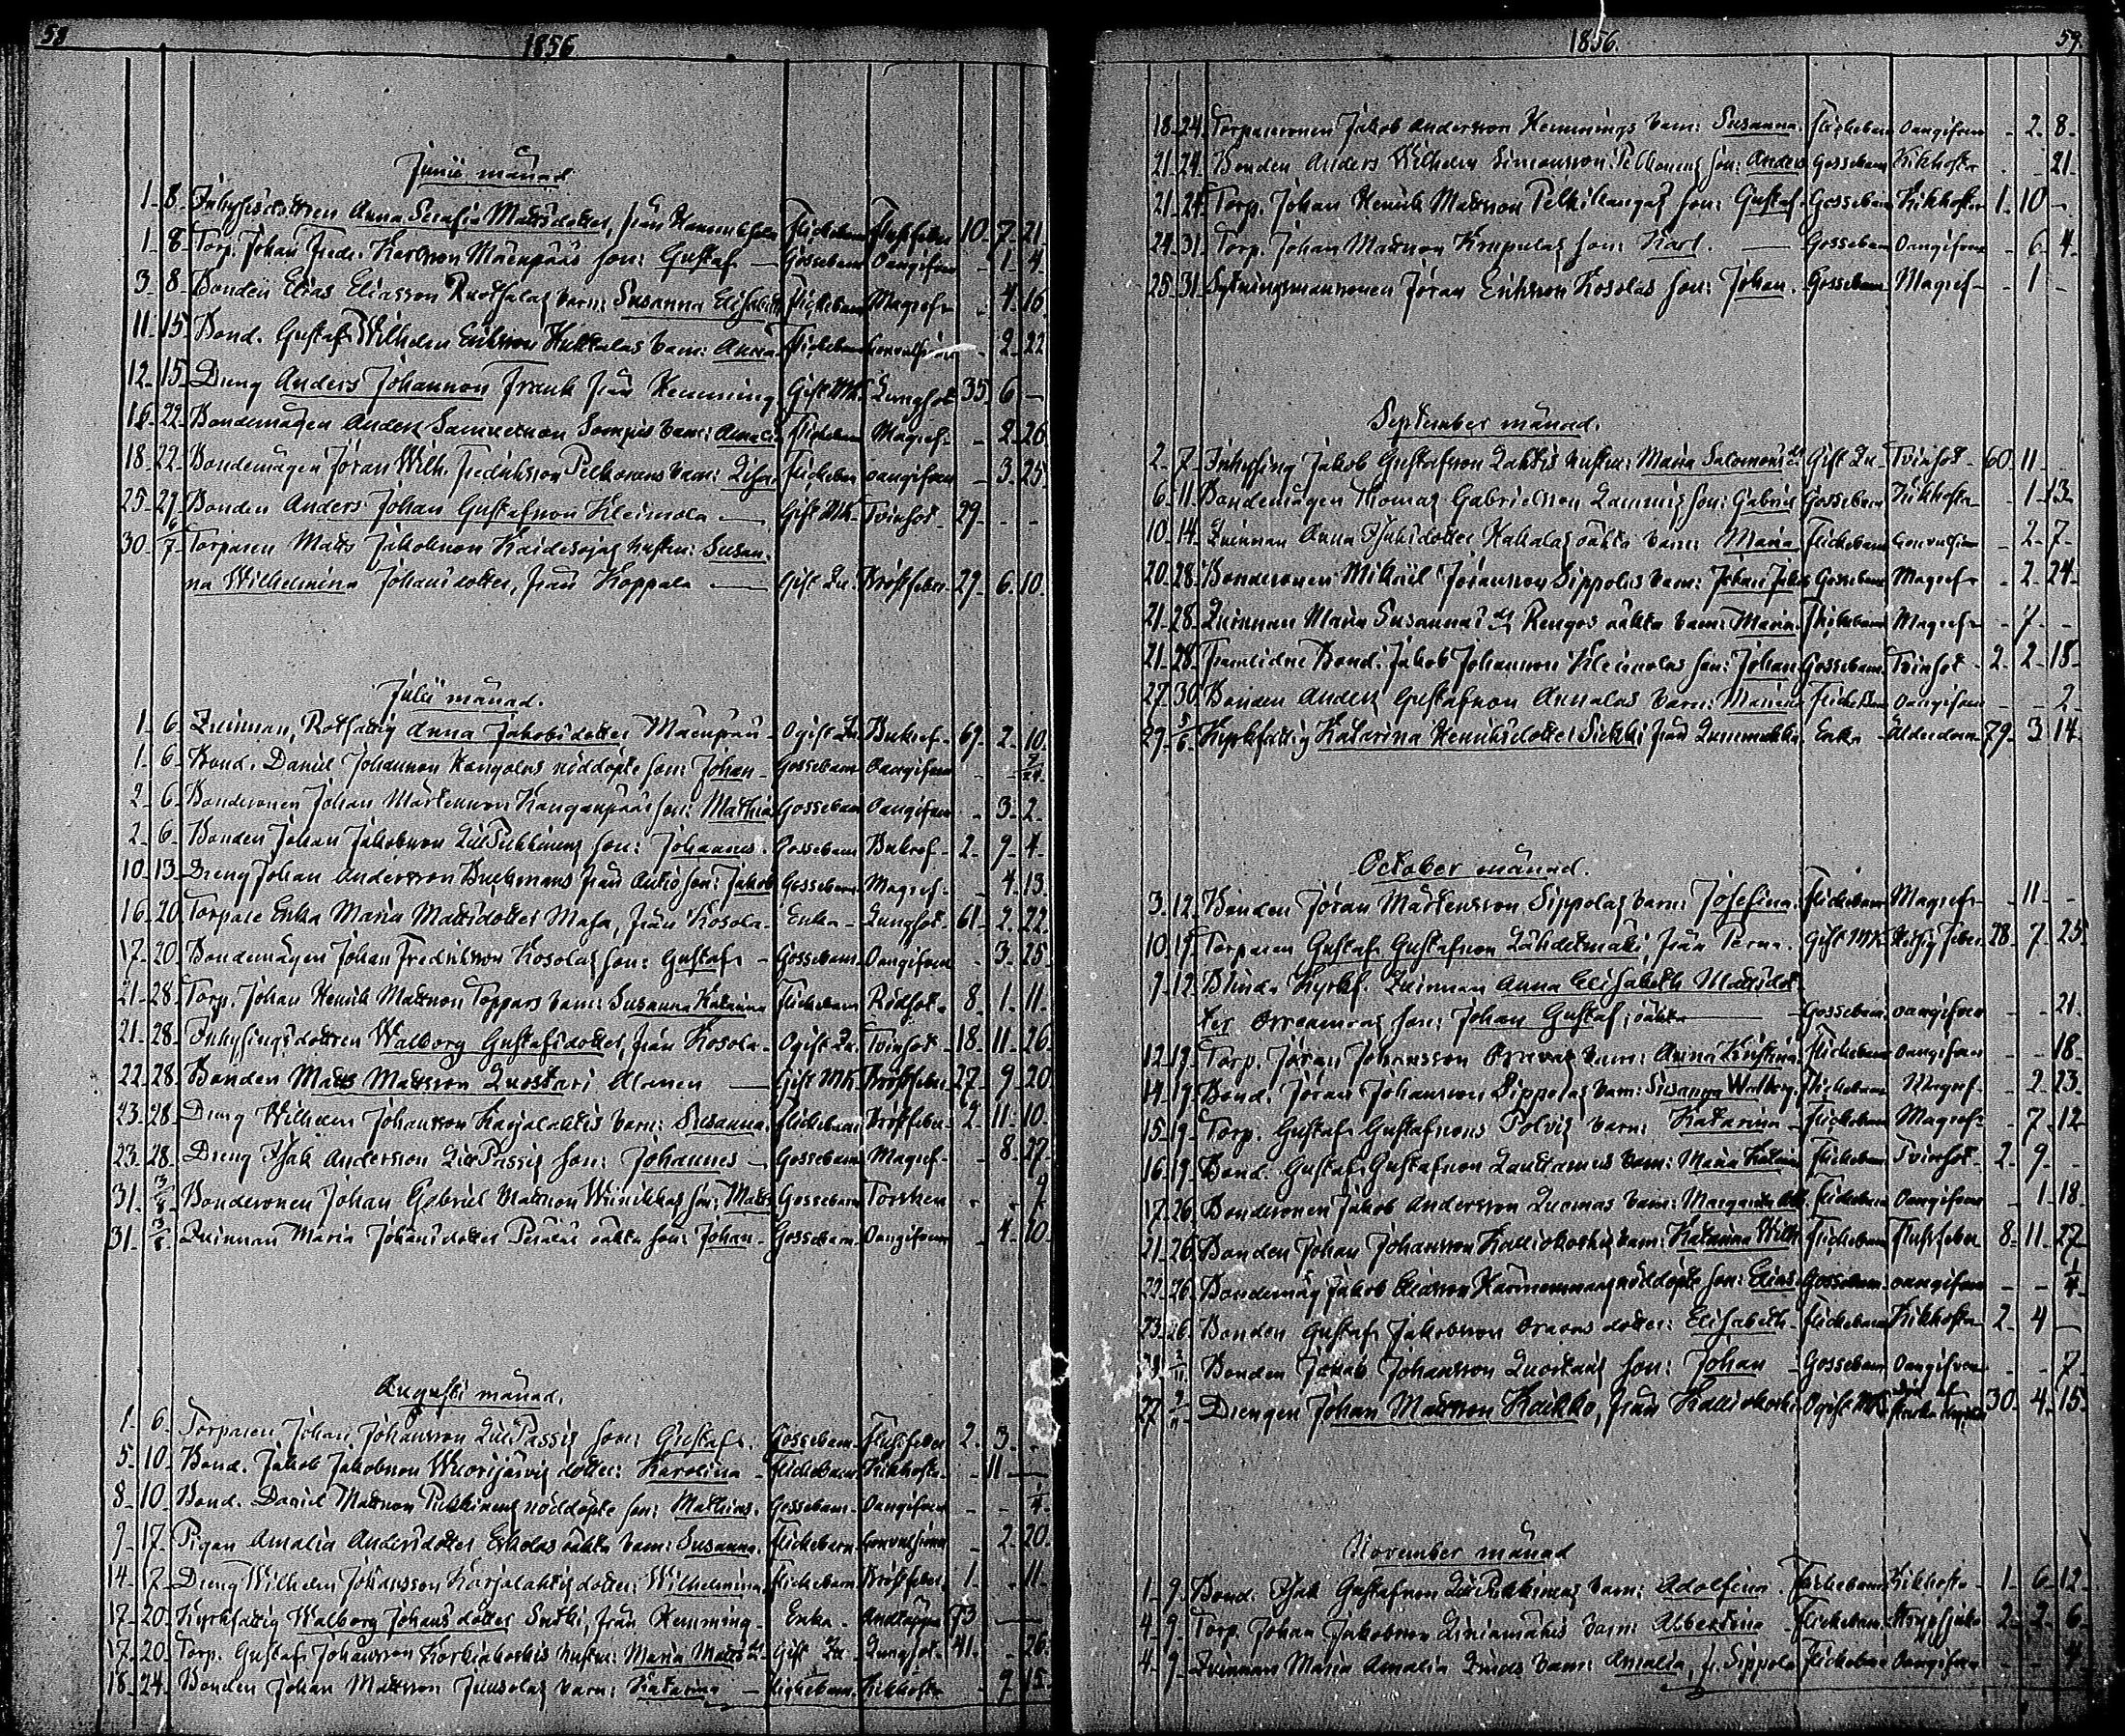 58
1856
Junii månad
1. 8. Inhysesdottren Anna Serafia Mattsdotter, från Flickebarn Slagfeber 10. 7. 21.
1. 8. Torp. Johan Fredr. Karlsson Mäenpääs son: Gustaf — Gossebarn Oangifven - 1. 4.
3. 8. Bonden Elias Eliasson Ruotsalas barn: Susanna Elisabeth Flickebarn Magref. - 4. 16.
11. 15. Bond. Gustaf Wilhelm Eriksson Huttalas barn: Anna Flickebarn Convulsion - 2. 22
12. 15. Dreng Anders Johansson Frank från Hemming Gift Mk. Lungsot 35. 6 —
16. 22. Bondemågen Anders Samuelsson barn: Amalia Flickebarn Magref. - 2. 26
18. 22. Bondemågen Jöran Wilh. Fredriksson Pelkonens barn: Lisa Flickebarn oangifven - 3. 25.
25. 29. Bonden Anders Johan Gustafsson Kleimola — Gift Mk. Tvinsot. 29. - -
30. 6/7. Torparen Matts Jakobsson Kaidesojas hustru: Susan-
na Wilhelmina Johansdotter, från Koppala — Gift Qu. Bröstfeber 29. 6. 10.
Julii månad.
1. 6. Quinnan, Rotfattig Anna Jakobsdotter Mäenpää - Ogift Qu. Bukref. 69. 2. 10.
1. 6. Bond. Daniel Johansson Kangolas nöddöpte son: Johan - Gossebarn Oangifven - -
2. 6. Bondesonen Johan Mårtensson Kangaspääs son: Mathias Gossebarn Oangifven - 3. 2.
2. 6. Bonden Johan Jakobsson LillPukkinens son: Johannes. Gossebarn Bukref. 2. 9. 4.
10. 13. Dreng Johan Andersson Buckmans från Antio son: Jakob Gossebarn. Magref. - 4. 13.
16. 20. Torpare Enka Maria Mattsdotter Masa, från Kosola. Enka - Lungsot. 61. 2. 22.
17. 20. Bondemågen Johan Fredriksson Kosolas son: Gustaf. - Gossebarn. Oangifven - 3. 25.
21. 28. Torp. Johan Henrik Mattsson Toppars barn: Susanna Katarina Flickebarn Rödsot. 8. 1. 11.
21. 28. Inhysingsdottren Walborg Gustafsdotter, från Kosola. Ogift Qu. Tvinsot. 18. 11. 26.
22. 28. Bonden Matts Mattsson Luostari Alanen — Gift Mk. Bröstfeber 27. 9. 20.
23. 28. Dreng Wilhelm Johansson Karjalahtis barn: Susanna. Flickebarn Bröstfeber 2. 11. 10.
23. 28. Dreng Isak Andersson LillPassis son: Johannes - Gossebarn Magref. - 8. 27.
31. 3/8. Bondesonen Johan Gabriel Mattsson Wiinikkas son: Matts Gossebarn Torsken - - 9.
31. 3/8. Quinnan Maria Johansdotter Peräläs oäkta son: Johan - Gossebarn. Oangifven - 4. 10.
Augusti månad.
1. 6. Torparen Johan Johansson LillPassis son: Gustaf. Gossebarn. Slagfeber 2. 3. -
5. 10. Bond. Jakob Jakobsson Wuorijärvis dotter: Karolina - Flickebarn. Kikhosta - 11 —
8. 10. Bond. Daniel Mattsson Pukkinens nöddöpte son: Mathias. Gossebarn. Oangifven - - 1/4.
9. 17. Pigan Amalia Andersdotter Erkolas oäkta barn: Susanna. Flickebarn. Convulsion - 2. 20.
14. 17. Dreng Wilhelm Johansson Karjalahtis dotter: Wilhelmina. Flickebarn Bröstfeber. 1. - 11.
17. 20. Kyrkfattig Walborg Johansdotter Suski, från Hemming - Enka - Andtäppa 73 —
17. 20. Torp. Gustaf Johansson Korkiakoskis hustru: Maria Mattsdr. Gift Qu. Lungsot. 41. - 26.
18. 24. Bonden Johan Mattsson Juusolas barn: Katarina - Flickebarn. Kikhosta - 9. 15.
1856.
59.
18. 24. Torparesonen Jakob Andersson Hemmings barn: Susanna. Flickebarn Oangifven - 2. 8.
21. 24. Bonden Anders Wilhelm Simonsson Pelkonens son: Anders Gossebarn Kikhosta - - 21.
21. 24. Torp. Johan Henrik Mattsson Pelkikangas son: Gustaf. Gossebarn Kikhosta 1. 10 -.
24. 31. Torp. Johan Mattsson Krepulas son: Karl. — Gossebarn Oangifven - 6. 4.
25. 31. Sytningsmanssonen Jöran Eriksson Kosolas son: Johan. Gossebarn. Magref. - 1 -
September månad.
2. 7. Inhysing Jakob Gustafsson Lahtis hustru: Maria Salomonsdr Gift Qu. Tvinsot. 60. 11 -
6. 11. Bondemågen Thomas Gabrielsson Lammis son: Gabriel Gossebarn Kikhosta - 1. 13.
10. 14. Quinnan Anna Isaksdotter Hakalas oäkta barn: Maria Flickebarn Convulsion - 2. 7.
20. 28. Bondesonen Mikael Jöransson Sippolas barn: Johan Jakob Gossebarn. Magref. - 2. 24.
21. 28. Quinnan Maria Susanna Rengos oäkta barn: Maria. Flickebarn Magref. - 7. -
21. 28. Framlidne Bond. Jakob Johansson Kleimolas son: Johan Gossebarn. Tvinsot. 2. 2. 18.
27. 30. Bonden Anders Gustafsson Annalas barn: Maria Flickebarn Oangifven - - 2.
29. 5/6. Kyrkfattig Katarina Henriksdotter Sickki från Enka - Ålderdom 79. 3. 14.
October månad.
3. 12. Bonden Jöran Mårtensson Sippolas barn: Josefina. Flickebarn Magref. - 11 -
10. 19. Torparen Gustaf Gustafsson Lähdetmäki, från Perna. Gift Mk. Hetsig feber 28. 7. 25.
7. 12. Blinda Kyrkf. Quinnan Anna Elisabeth Mattsdot-
ter son: Johan Gustaf, oäkta — Gossebarn. oangifven - - 21.
12. 19. Torp. Jöran Johansson Oravas barn: Anna Kristina. Flickebarn Oangifven - - 18.
14. 19. Bond. Jöran Johansson Sippolas barn: Susanna Walborg. Flickebarn Magref. - 2. 23.
15. 19. Torp. Gustaf Gustafssons Polvis barn: Katarina - Flickebarn Magref. - 7. 12.
16. 19. Bond. Gustaf Gustafsson Lauttamus barn: Maria Katarina Flickebarn Tvinsot. 2. 9. -
17. 26. Bondesonen Jakob Andersson Luomas barn: Margareta Flickebarn Oangifven - 1. 18.
21. 26. Bonden Johan Johansson Kalliokoskis barn: Katarina Wilh. Flickebarn Slagfeber 8. 11. 27
22. 26. Bondemåg Jakob Eliasson nöddöpte son: Elias. Gossebarn. oangifven - - 1/4.
23. 26. Bonden Gustaf Jakobsson Oravas dotter: Elisabeth. Flickebarn Kikhosta 2. 4 —
28. 2/11. Bonden Jakob Johansson Luostaris son: Johan - Gossebarn Oangifven - - 7
27. 2/11. Drengen Johan Mattsson Kaikko, från Kalliokoski Ogift Mk. 30. 4. 15.
November månad
1. 9. Bond. Isak Gustafsson LillPukkinens barn: Adolfina. Flickebarn. Kikhosta. 1. 6. 12.
4. 9. Torp. Johan Jakobsson Liniamäkis barn: Albertina - Flickebarn. 2. 2. 6.
4. 9. Quinnan Maria Amalia Lunds barn: Amalia, fr. Sippola Flickebarn Oangifven - - 4